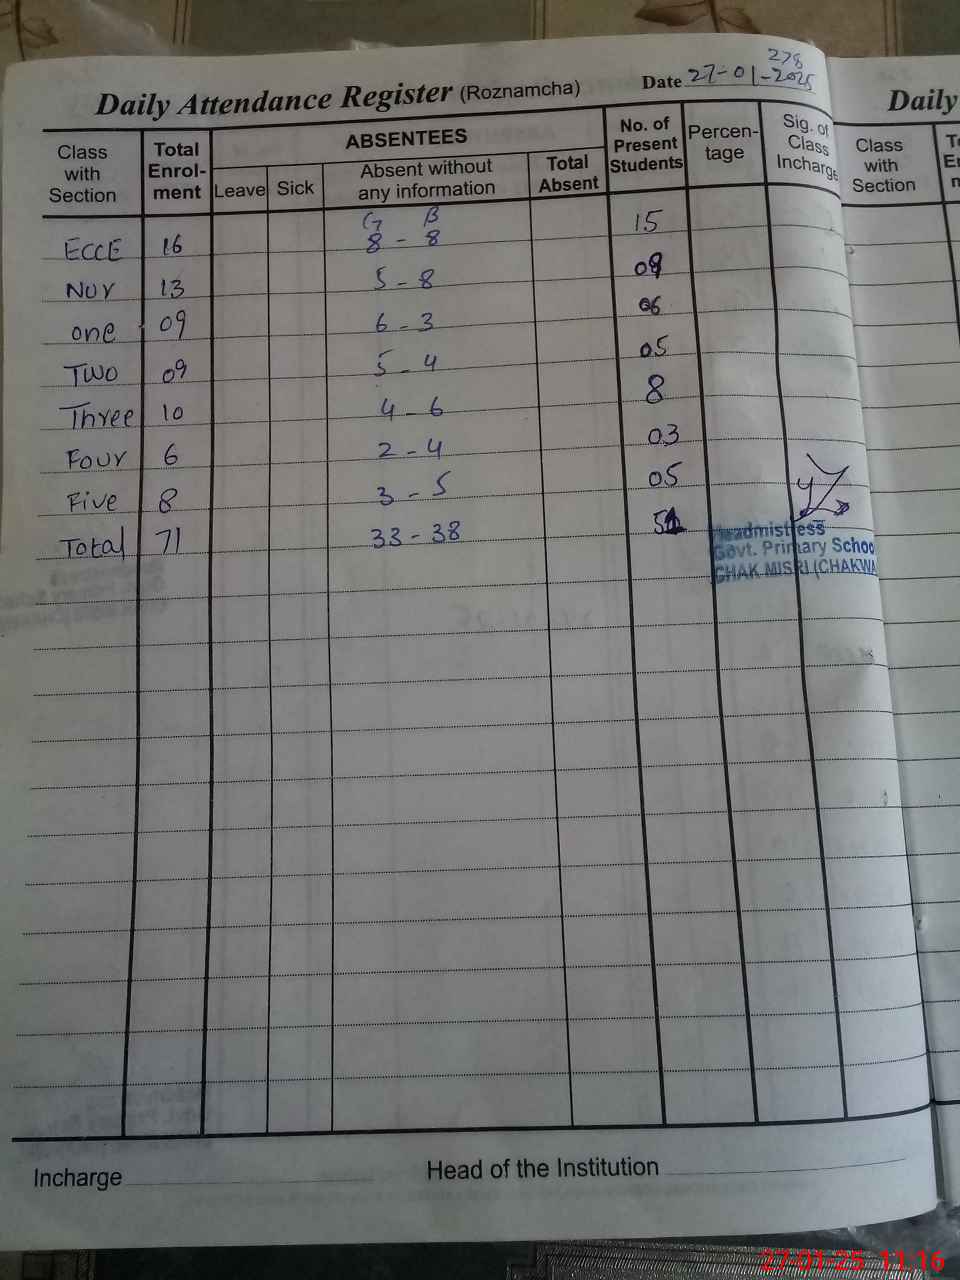 278
Daily Attendance Register (Roznamcha) Date 27-01-2025
Class with Section Total Enrol-ment ABSENTEES Leave Sick Absent without any information Total Absent No. of Present Students Percen-tage Sig. of Class Incharge
G B
ECCE 16 8 - 8 15
Nur 13 5 - 8 09
one 09 6 - 3 06
Two 09 5 - 4 05
Three 10 4 - 6 8
Four 6 2 - 4 03
Five 8 3 - 5 05
Total 71 33 - 38 51
Headmistress
Govt. Primary Schoo
CHAK MISRI (CHAKWA
Incharge Head of the Institution
Daily
Class with Section
27-01-25 11:16